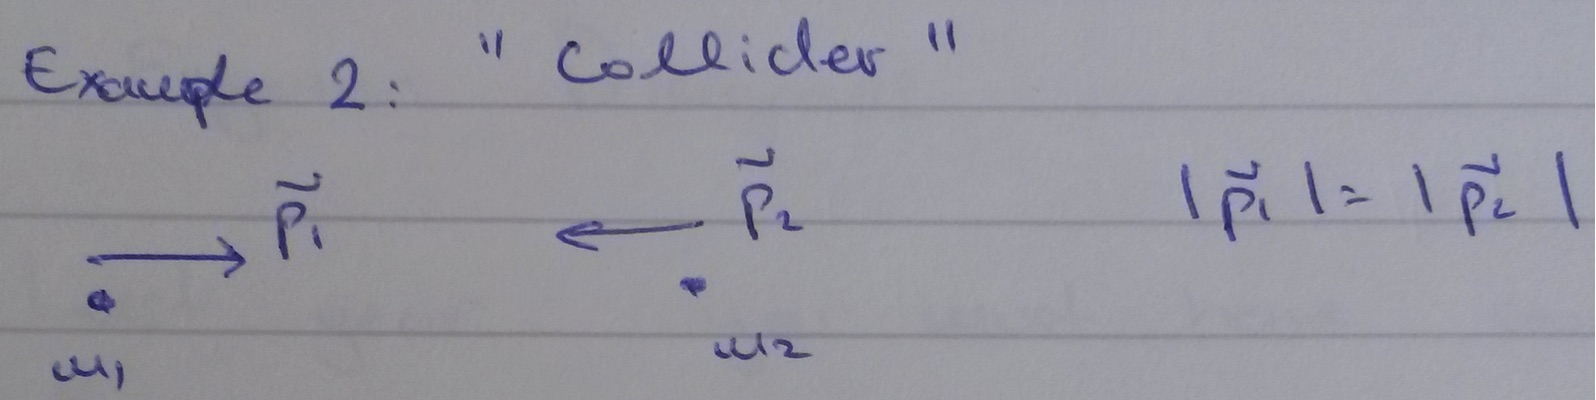 Example 2: "Collider"
p⃗₁ p⃗₂ |p⃗₁| = |p⃗₂|
m₁ m₂